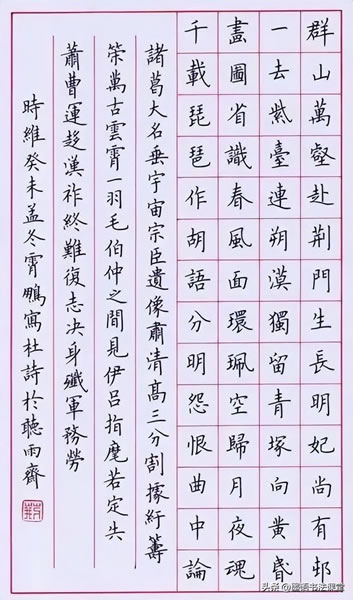 群山萬壑赴荆門生長明妃尚有邨
一去紫臺連朔漠獨留青塚向黄昏
畫圖省識春風面環珮空歸月夜魂
千載琵琶作胡語分明怨恨曲中論
諸葛大名垂宇宙宗臣遺像肅清高三分割據紆籌
策萬古雲霄一羽毛伯仲之間見伊吕指麾若定失
蕭曹運趍漢祚終難復志决身殲軍務勞
時維癸未孟冬霄鵬寫杜詩於聽雨齋
头条 @墨语书法课堂